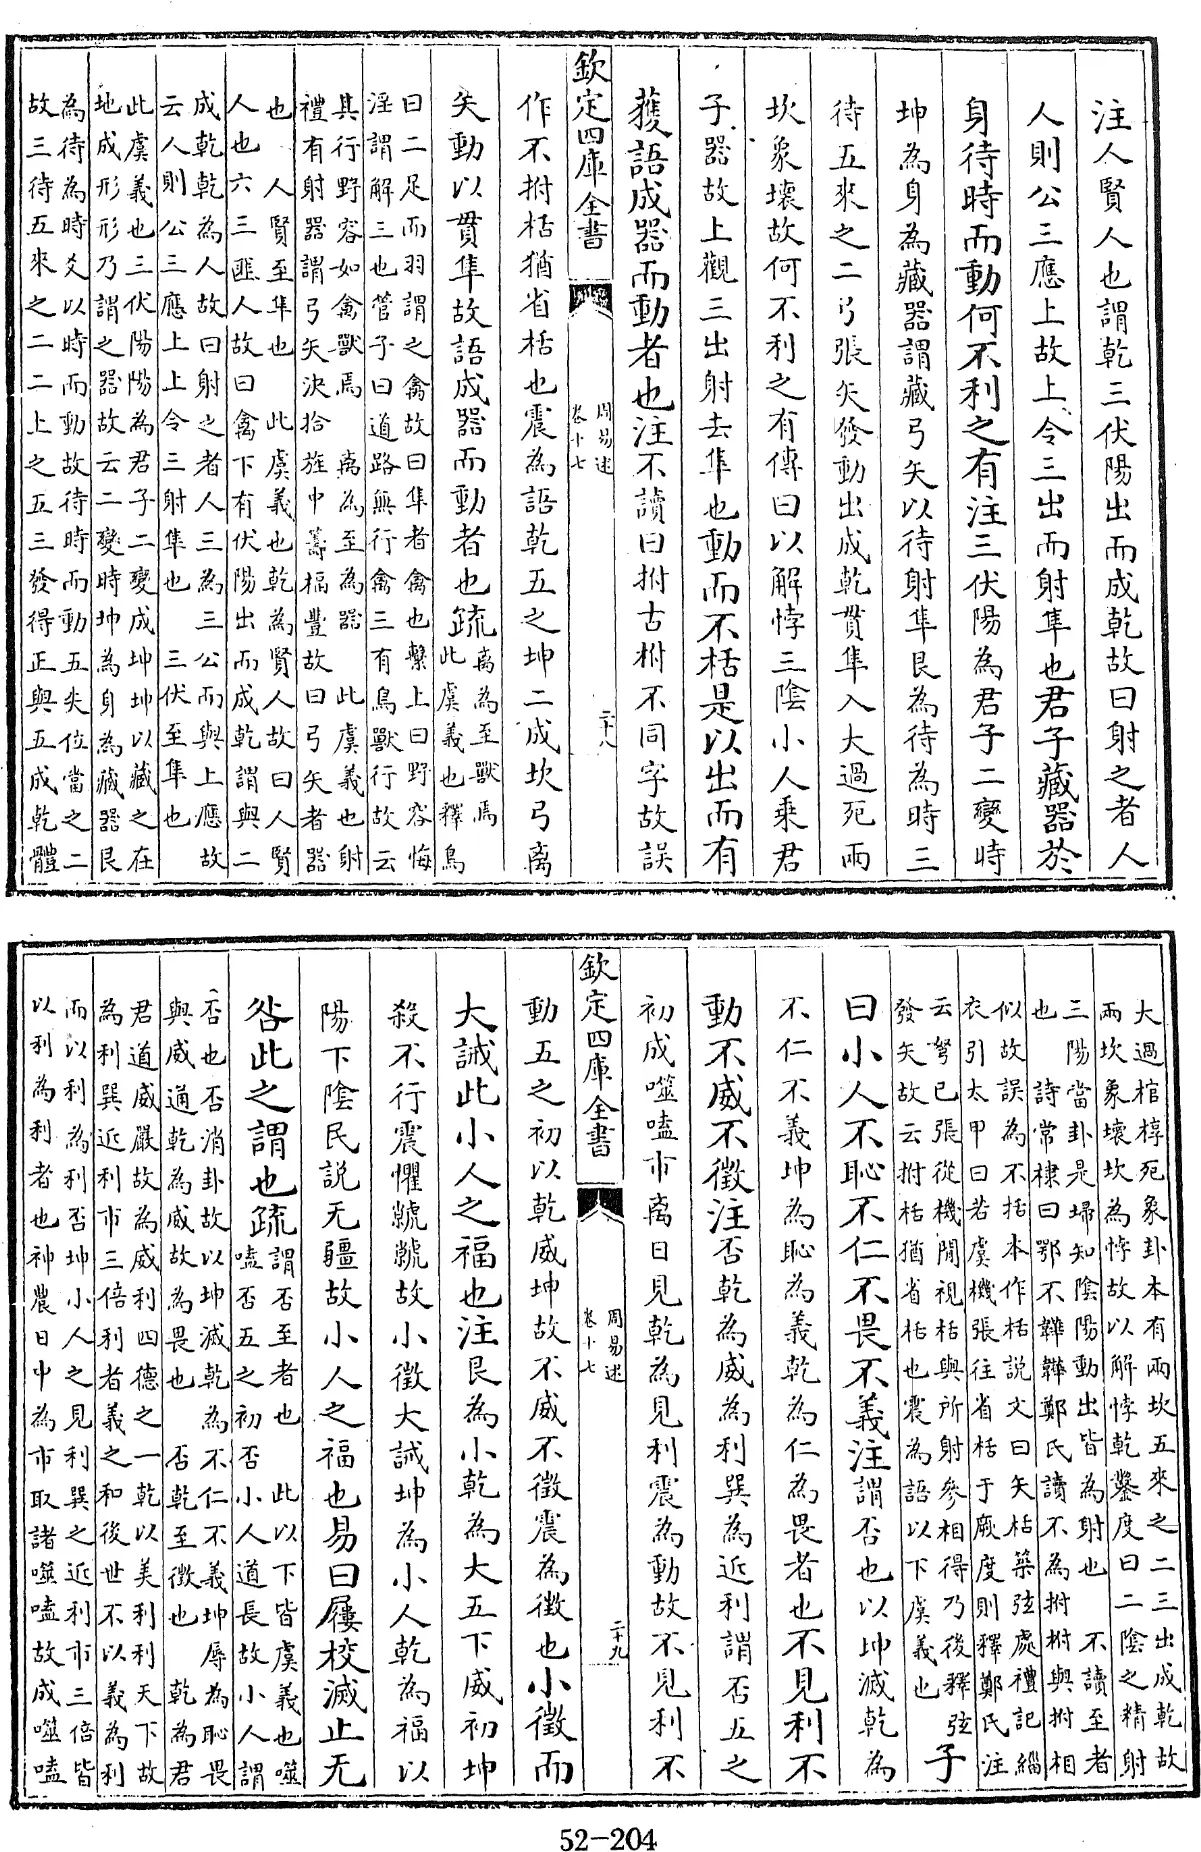 注人賢人也謂乾三伏陽出而成乾故曰射之者人
人則公三應上故上令三出而射隼也君子藏器於
身待時而動何不利之有注三伏陽為君子二變時
坤為身為藏器謂藏弓矢以待射隼艮為待為時三
待五來之二弓張矢發動出成乾貫隼入大過死兩
坎象壞故何不利之有傳曰以解悖三陰小人乘君
子器故上觀三出射去隼也動而不栝是以出而有
獲語成器而動者也注不讀曰拊古柎不同字故誤
欽定四庫全書
周易述
卷十七
二十八
作不拊栝猶省栝也震為語乾五之坤二成坎弓離
矢動以貫隼故語成器而動者也疏
离為至獸焉
此虞義也釋鳥
曰二足而羽謂之禽故曰隼者禽也繫上曰野容悔
淫謂解三也管子曰道路無行禽三有鳥獸行故云
其行野容如禽獸焉 离為至為器 此虞義也射
禮有射器謂弓矢決拾旌中籌楅豐故曰弓矢者器
也 人賢至隼也 此虞義也乾為賢人故曰人賢
人也六三匪人故曰禽下有伏陽出而成乾謂與二
成乾乾為人故曰射之者人三為三公而與上應故
云人則公三應上上令三射隼也 三伏至隼也
此虞義也三伏陽陽為君子二變成坤坤以藏之在
地成形形乃謂之器故云二變時坤為身為藏器艮
為待為時爻以時而動故待時而動五失位當之二
故三待五來之二二上之五三發得正與五成乾體
大過棺椁死象卦本有兩坎五來之二三出成乾故
兩坎象壞坎為悖故以解悖乾鑿度曰二陰之精射
三陽當卦是埽知陰陽動出皆為射也 不讀至者
也 詩常棣曰鄂不韡韡鄭氏讀不為拊拊與柎相
似故誤為不括本作栝說文曰矢栝築弦處禮記緇
衣引太甲曰若虞機張往省栝于厥度則釋鄭氏注
云弩已張從機閒視栝與所射參相得乃後釋弦
發矢故云拊栝猶省栝也震為語以下虞義也
子
曰小人不恥不仁不畏不義注謂否也以坤滅乾為
不仁不義坤為恥為義乾為仁為畏者也不見利不
動不威不徵注否乾為威為利巽為近利謂否五之
初成噬嗑巿离日見乾為見利震為動故不見利不
欽定四庫全書
周易述
卷十七
二十九
動五之初以乾威坤故不威不徵震為徵也小徵而
大誡此小人之福也注艮為小乾為大五下威初坤
殺不行震懼虩虩故小徵大誡坤為小人乾為福以
陽下陰民說无疆故小人之福也易曰屨校滅止无
咎此之謂也疏
謂否至者也 此以下皆虞義也噬
嗑否五之初否小人道長故小人謂
否也否消卦故以坤滅乾為不仁不義坤辱為恥畏
與威通乾為威故為畏也 否乾至徵也 乾為君
君道威嚴故為威利四德之一乾以美利利天下故
為利巽近利巿三倍利者義之和後世不以義為利
而以利為利否坤小人之見利巽之近利巿三倍皆
以利為利者也神農日中為巿取諸噬嗑故成噬嗑
52-204